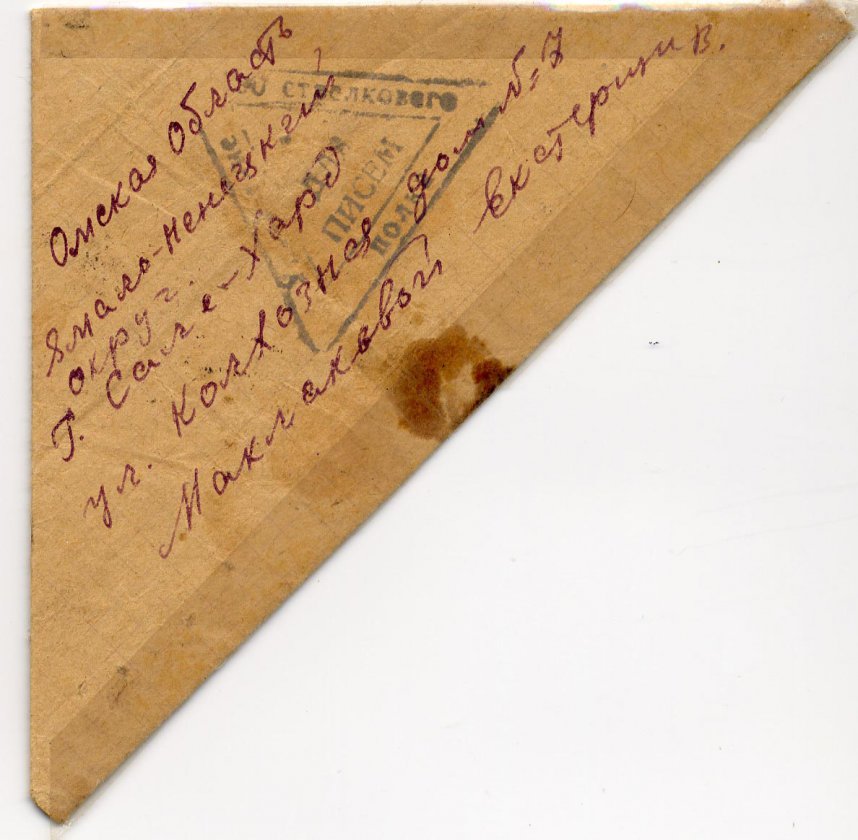 Омская Область
Ямало-ненецкий
округ.
г. Сале-Хард
ул. Колхозная дом №=7
Маклаковой Екатерини В.
стрелкового
для
писем
полка